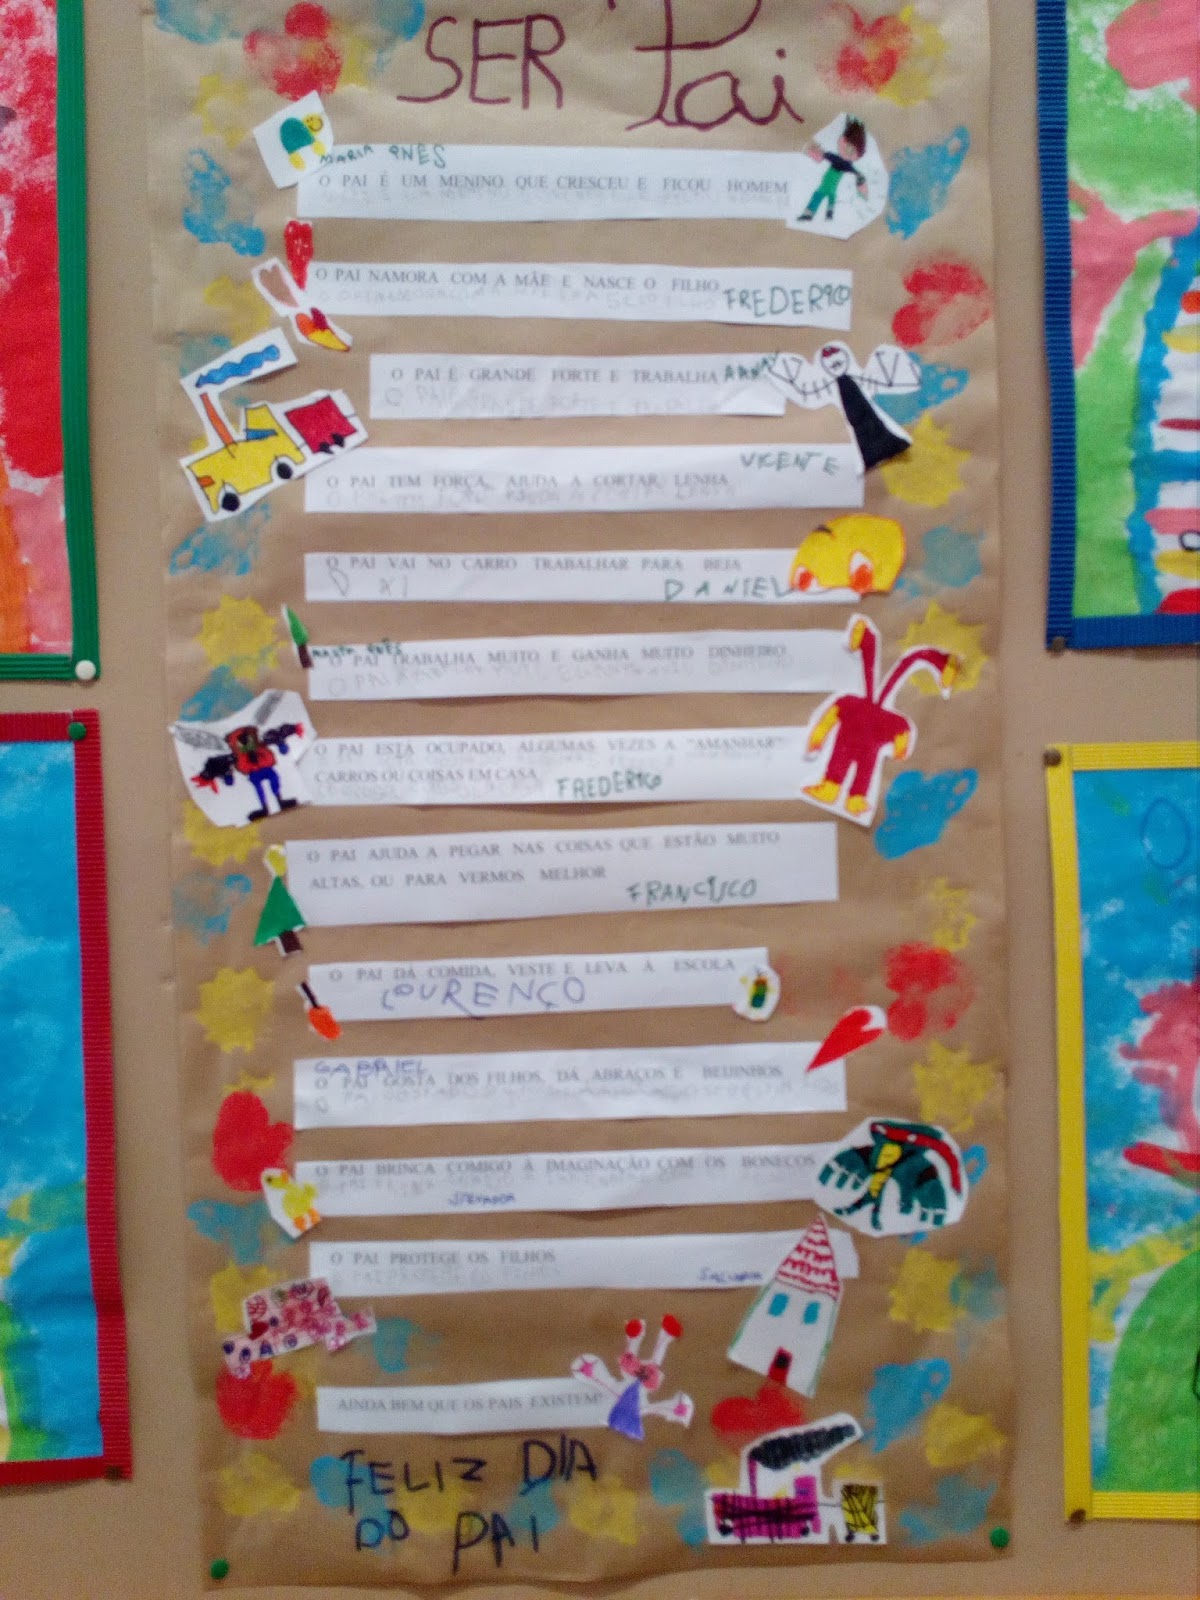 SER Pai
MARIA INÊS
O PAI É UM MENINO QUE CRESCEU E FICOU HOMEM
O PAI NAMORA COM A MÃE E NASCE O FILHO
FREDERICO
O PAI É GRANDE FORTE E TRABALHA
VICENTE
O PAI TEM FORÇA, AJUDA A CORTAR LENHA
O PAI VAI NO CARRO TRABALHAR PARA BEJA
DANIEL
MARIA INÊS
O PAI TRABALHA MUITO E GANHA MUITO DINHEIRO
O PAI ESTÁ OCUPADO, ALGUMAS VEZES A "AMANHAR"
CARROS OU COISAS EM CASA FREDERICO
O PAI AJUDA A PEGAR NAS COISAS QUE ESTÃO MUITO
ALTAS, OU PARA VERMOS MELHOR
FRANCISCO
O PAI DÁ COMIDA, VESTE E LEVA À ESCOLA
LOURENÇO
GABRIEL
O PAI GOSTA DOS FILHOS, DÁ ABRAÇOS E BEIJINHOS
O PAI BRINCA COMIGO À IMAGINAÇÃO COM OS BONECOS
SALVADOR
O PAI PROTEGE OS FILHOS
SALVADOR
AINDA BEM QUE OS PAIS EXISTEM!
FELIZ DIA
DO PAI